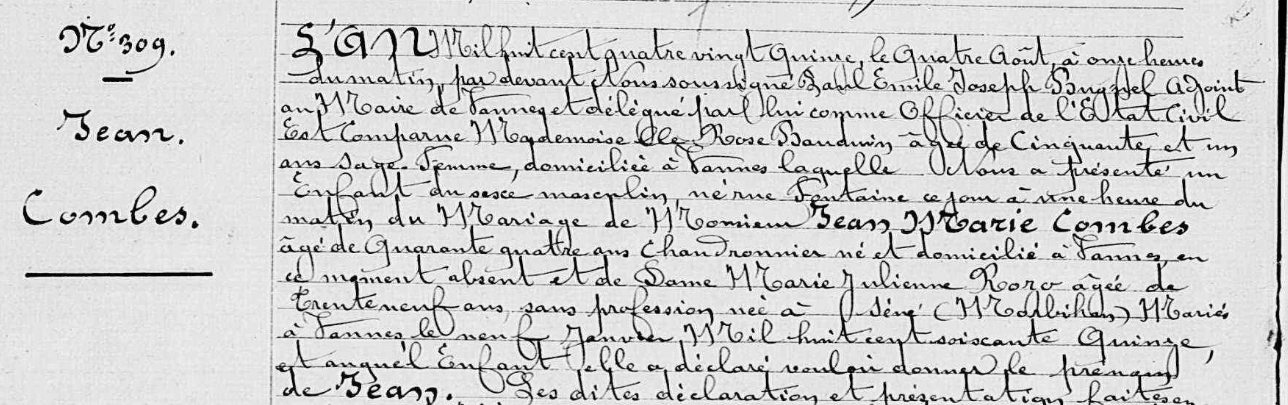 N° 309.
Jean.
Combes.
L'An Mil huit cent quatre vingt Quinze, le Quatre Août, à onze heures
du matin, par devant Nous soussigné Paul Emile Joseph Adjoint
au Maire de Vannes et délégué par lui comme Officier de l'Etat Civil
Est Comparue Mademoiselle Rose Bauduin âgée de Cinquante et un
ans Sage-Femme, domiciliée à Vannes laquelle Nous a présenté un
Enfant du sexe masculin, né rue Fontaine ce jour à une heure du
matin du Mariage de Monsieur Jean Marie Combes
âgé de Quarante quatre ans Chaudronnier né et domicilié à Vannes, en
ce moment absent et de Dame Marie Julienne Rozo âgée de
Trente neuf ans, sans profession née à Séné (Morbihan) Mariés
à Vannes le neuf Janvier Mil huit cent soixante Quinze,
et auquel Enfant elle a déclaré vouloir donner le prénom
de Jean. Les dites déclaration et présentation faites en